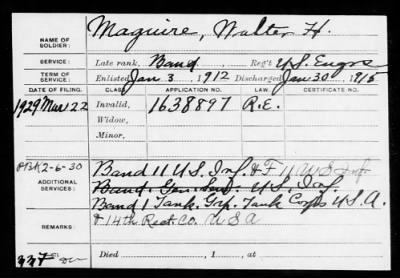 NAME OF SOLDIER: Maguire, Walter H.
SERVICE: Late rank, Band Reg't U.S. Engrs
TERM OF SERVICE: Enlisted Jan 3, 1912 Discharged Jan 30, 1915
DATE OF FILING. CLASS. APPLICATION NO. LAW. CERTIFICATE NO.
1929 Mar 22 Invalid, 1638897 R.E.
Widow,
Minor,
2-6-30 Band 11 U.S. Inf. & F 11 U S Inf.
ADDITIONAL SERVICES: Band. U.S. Inf.
Band 1 Tank. Grp. Tank Corps U.S.A.
& 14th Rect. Co. U S A
REMARKS:
Died , 1 , at